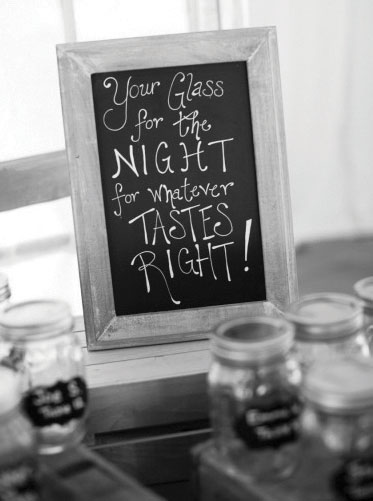 Your Glass
for the
NIGHT
for whatever
TASTES
RIGHT!